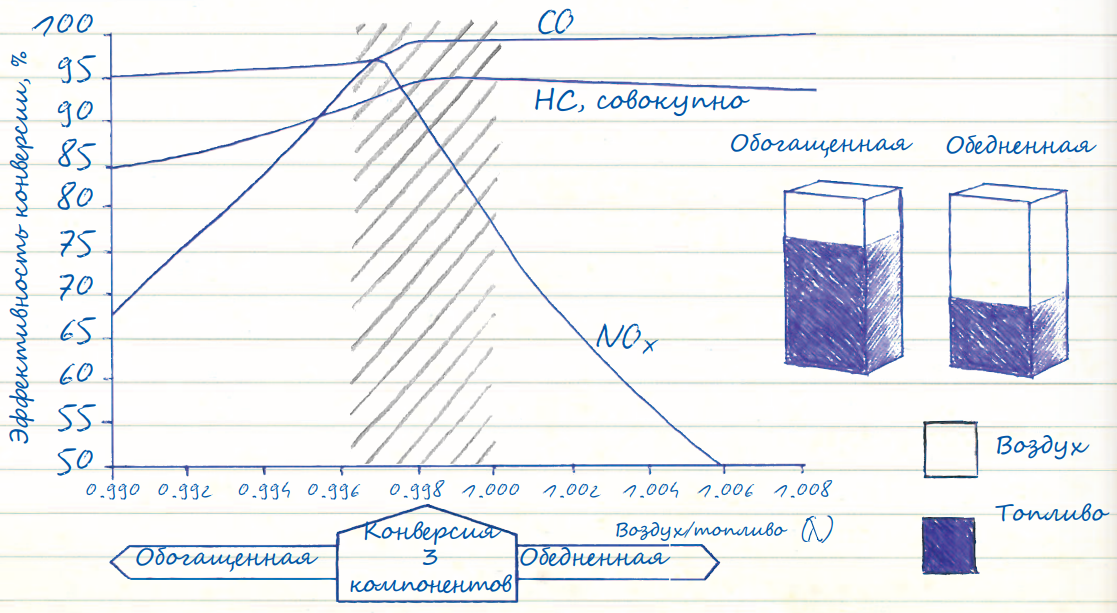 Эффективность конверсии, %
100
95
90
85
80
75
70
65
60
55
50
CO
HC, совокупно
NOx
0.990 0.992 0.994 0.996 0.998 1.000 1.002 1.004 1.006 1.008
Воздух/топливо (λ)
Обогащенная
Конверсия
3
компонентов
Обедненная
Обогащенная
Обедненная
Воздух
Топливо